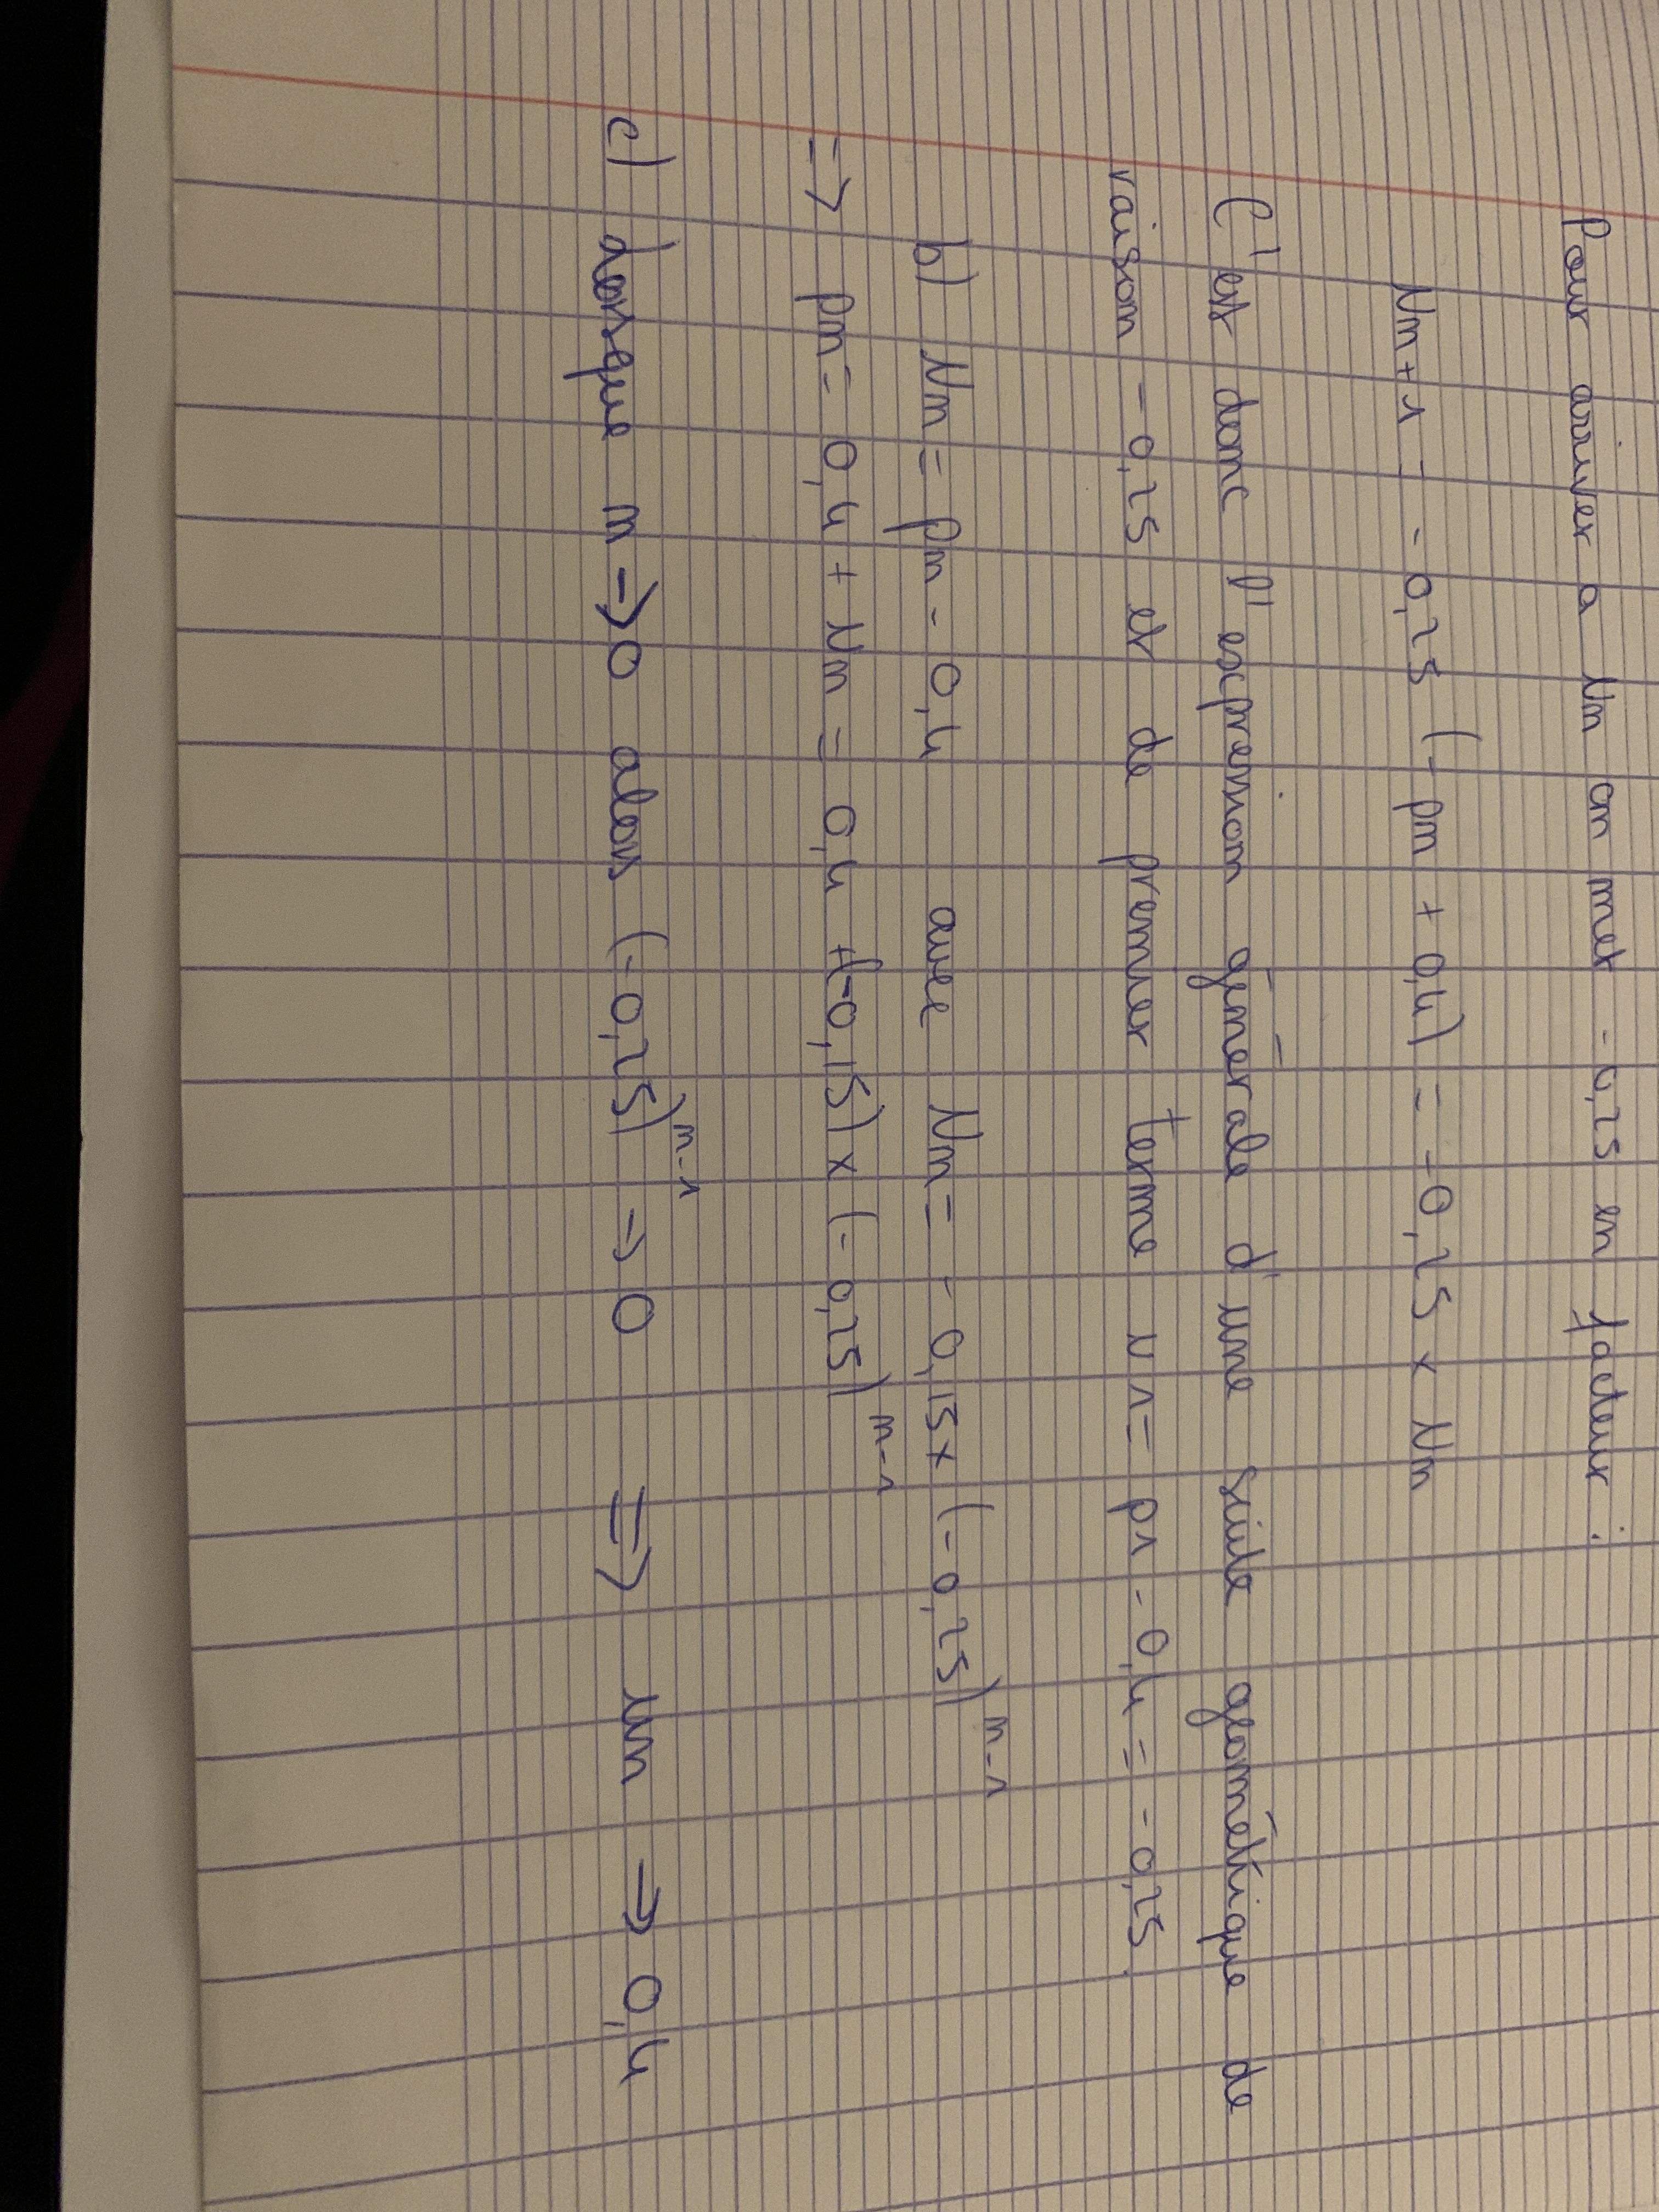 Pour arriver a Vn on met -0,25 en facteur :
Vn+1 = -0,25 (-pn + 0,4) = -0,25 x Vn
C'est donc l'expression générale d'une suite géométrique de
raison -0,25 et de premier terme v1 = p1 - 0,4 = -0,25.
b) Vn = pn - 0,4 avec Vn = -0,15 x (-0,25)^n-1
=> pn = 0,4 + Vn = 0,4 +(-0,15) x (-0,25)^n-1
c) lorsque n → 0 alors (-0,25)^n-1 → 0 => un → 0,4